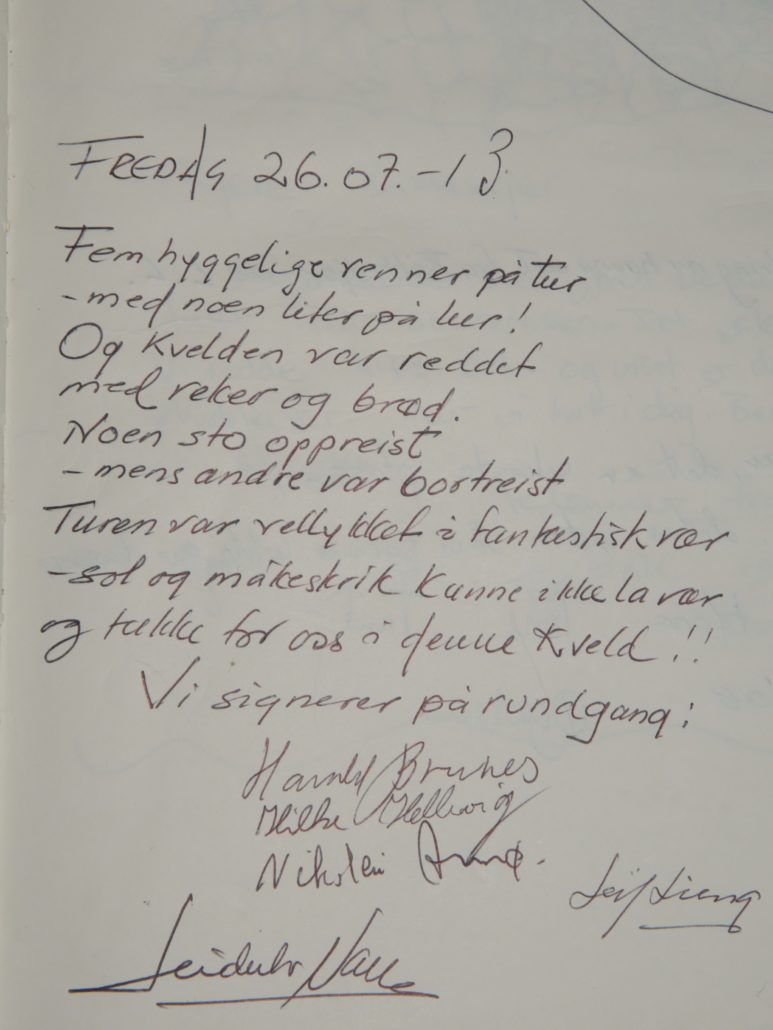 FREDAG 26.07.-13.
Fem hyggelige venner på tur
-med noen liter på lur!
Og kvelden var reddet
med reker og brød.
Noen sto oppreist
-mens andre var bortreist
Turen var vellykket i fantastisk vær
-sol og måkeskrik kunne ikke la vær
og takke for oss i denne kveld!!
Vi signerer på rundgang:
Harald Brunes
Hilke Hellwig
Nikolai
Leif